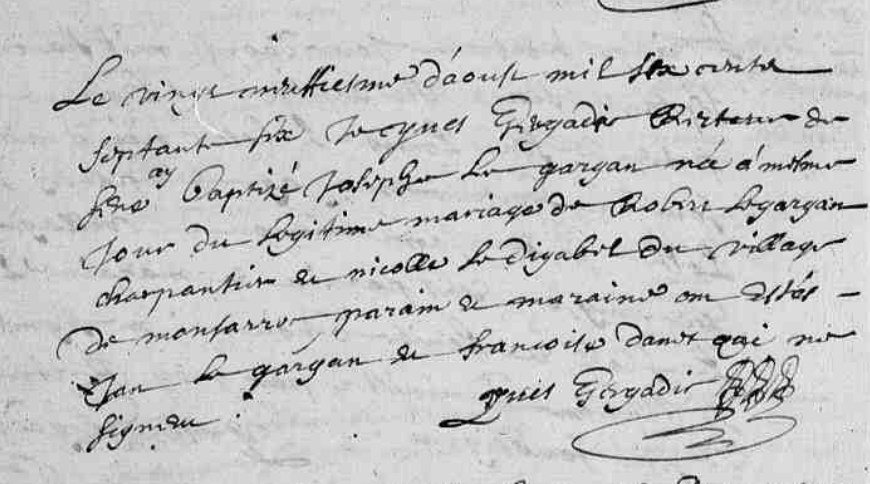 Le vingt neuffiesme d'aoust mil six cents
septante six je yues Gergadic Recteur de
ay baptizé Josephe Le gargan née à mesme
jour du legitime mariage de Robert Le gargan
charpantier et nicolle Le digabel du village
de monsarro parain et maraine ont estés
Jan Le gargan et francoise danet qui ne
signent
yues Gergadic